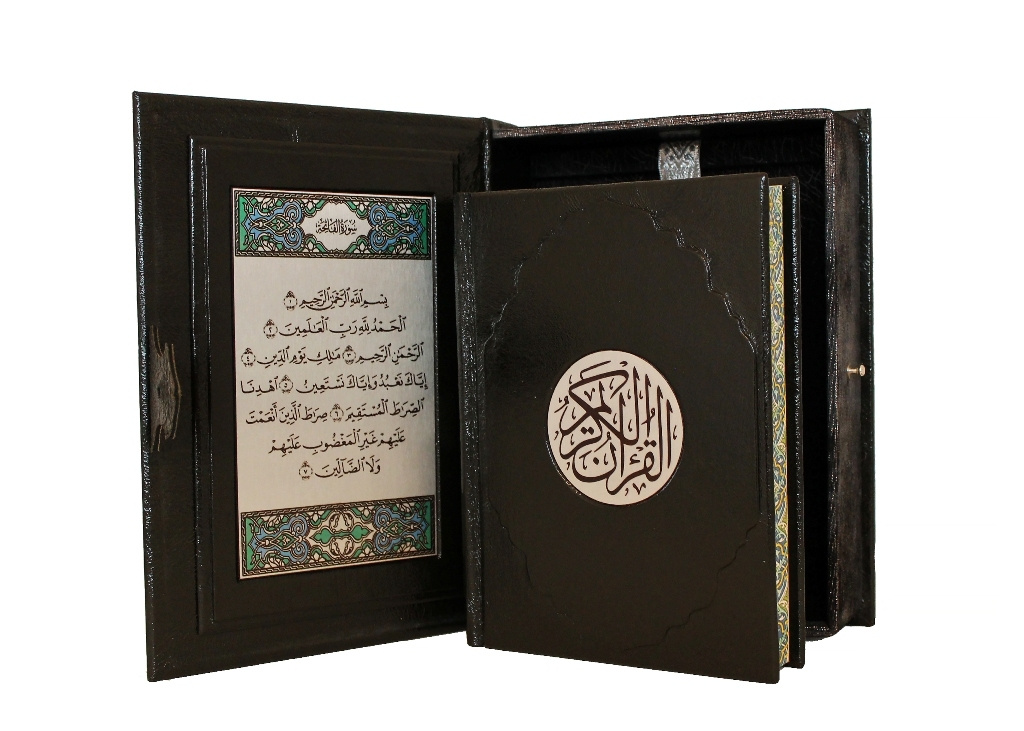 سُورَةُ الفَاتِحَةِ
بِسْمِ ٱللَّهِ ٱلرَّحْمَٰنِ ٱلرَّحِيمِ ١
ٱلْحَمْدُ لِلَّهِ رَبِّ ٱلْعَٰلَمِينَ ٢
ٱلرَّحْمَٰنِ ٱلرَّحِيمِ ٣ مَٰلِكِ يَوْمِ ٱلدِّينِ ٤
إِيَّاكَ نَعْبُدُ وَإِيَّاكَ نَسْتَعِينُ ٥ ٱهْدِنَا
ٱلصِّرَٰطَ ٱلْمُسْتَقِيمَ ٦ صِرَٰطَ ٱلَّذِينَ أَنْعَمْتَ
عَلَيْهِمْ غَيْرِ ٱلْمَغْضُوبِ عَلَيْهِمْ
وَلَا ٱلضَّآلِّينَ ٧
القرآن الكريم